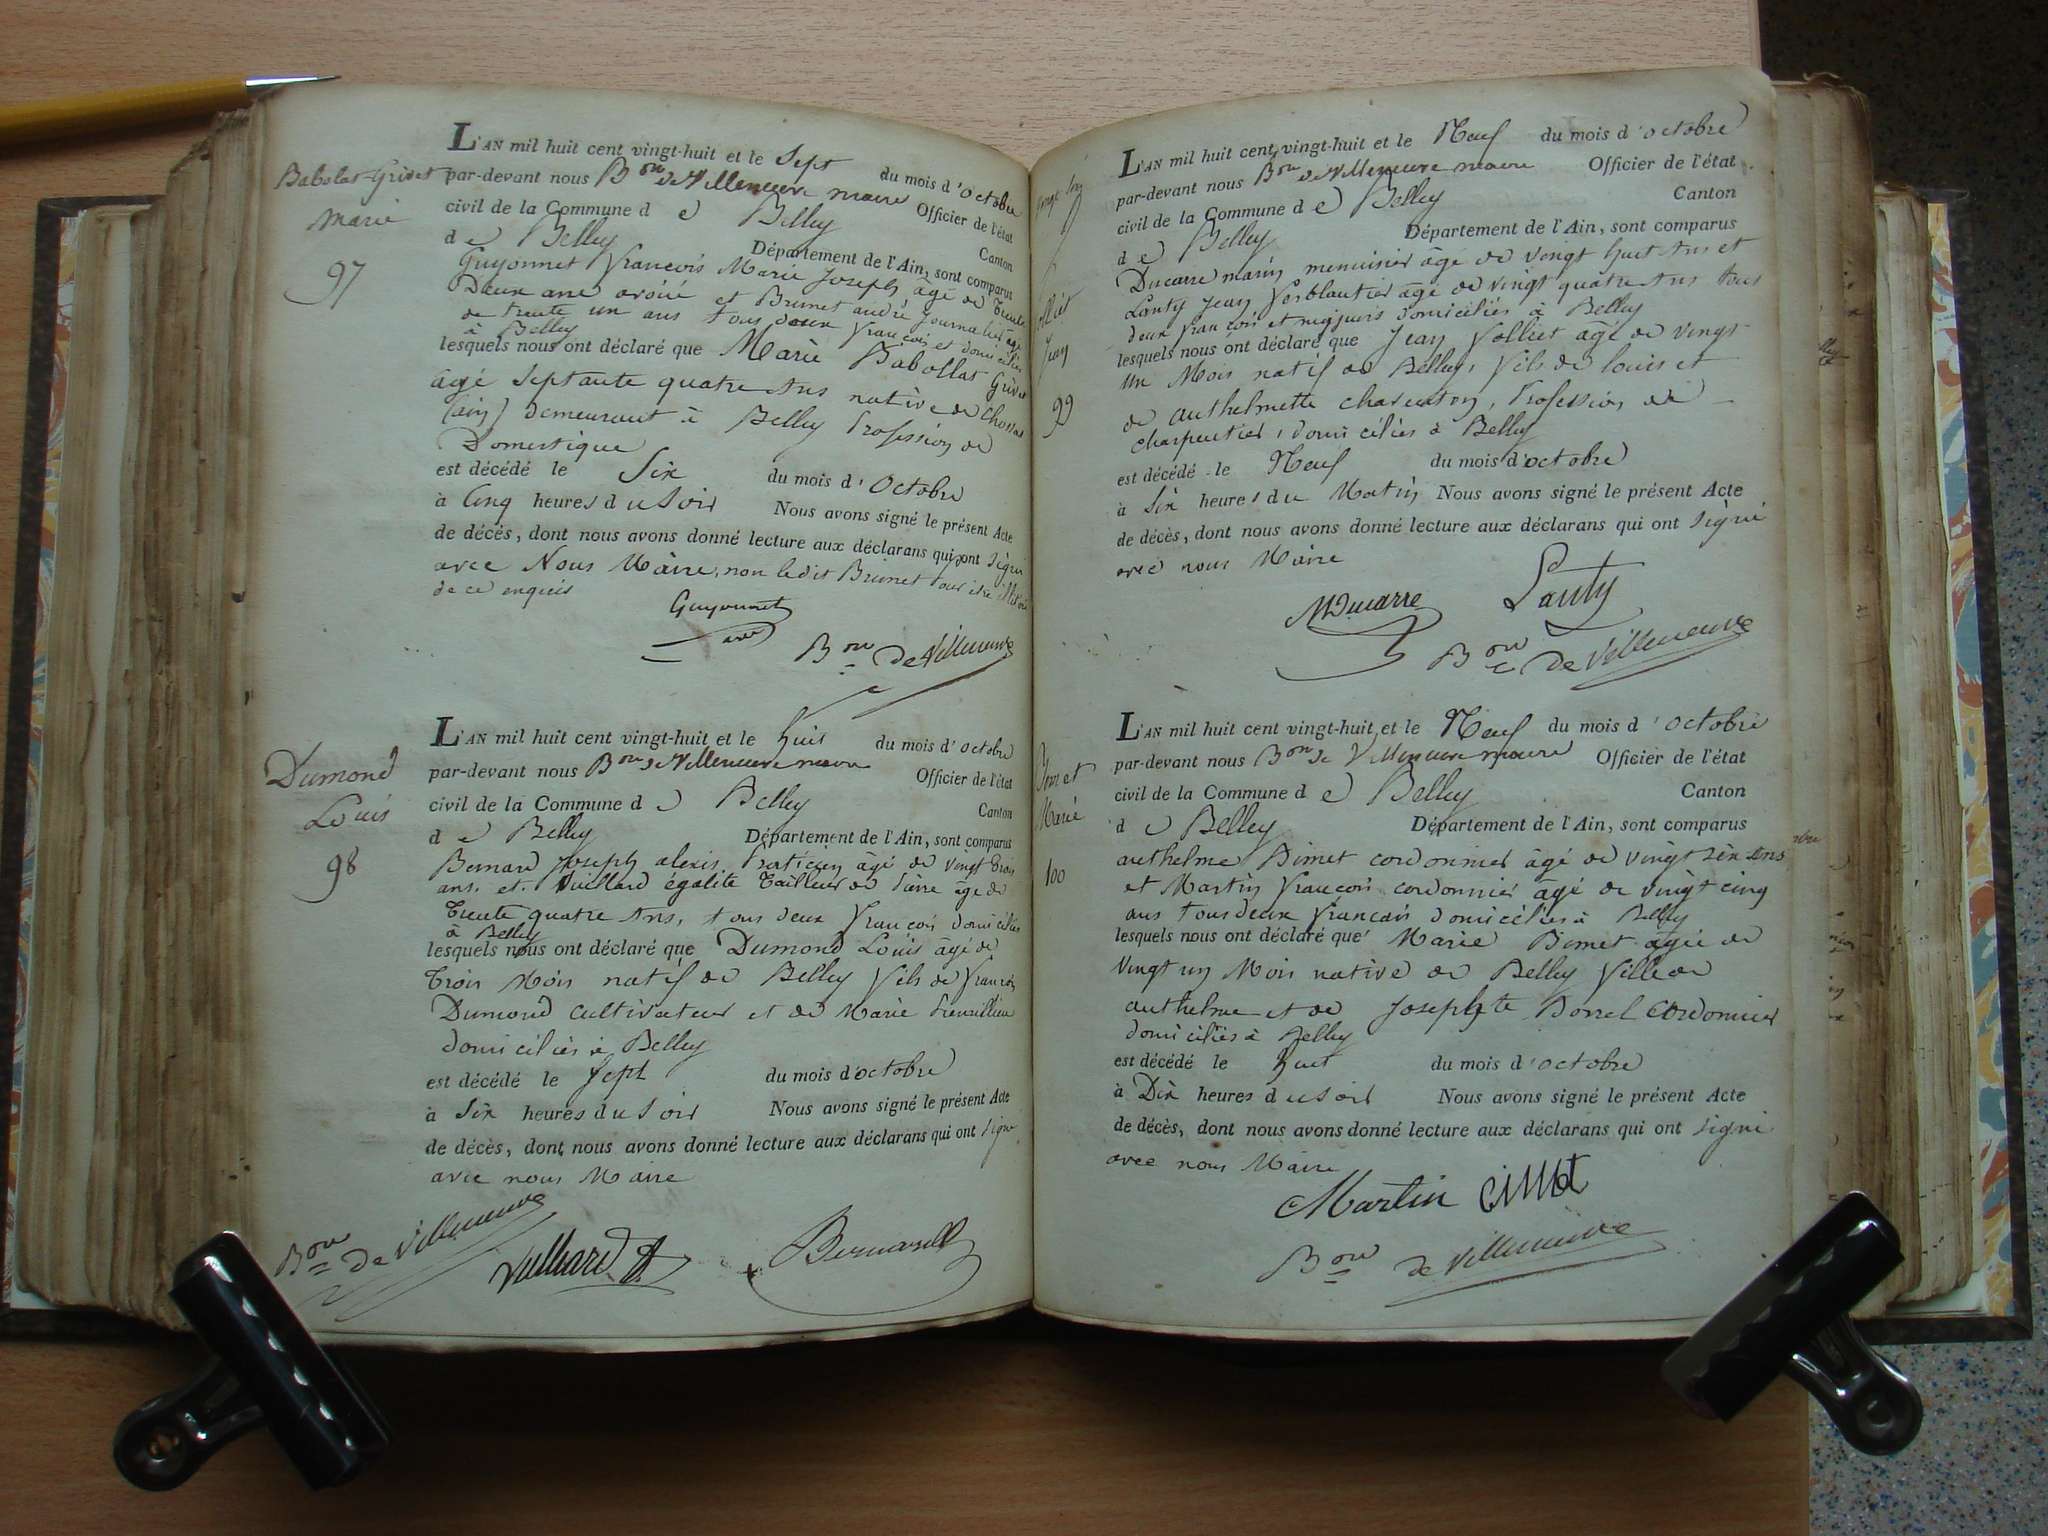 Babolat-Grivet
Marie
97
L'AN mil huit cent vingt-huit et le Sept du mois d'Octobre
par-devant nous Bon de Villeneuve maire Officier de l'état
civil de la Commune d e Belley Canton
d e Belley Département de l'Ain, sont comparus
Guyonnet François Marie Joseph âgé de Trente
Deux ans avoué et Brunet andré Journalier âgé
de trente un ans tous deux français et domiciliés
à Belley
lesquels nous ont déclaré que Marie Babollat Grivet
âgé Septante quatre Ans native de
(ain) demeurant à Belley Profession de
Domestique
est décédé le Six du mois d'Octobre
à Cinq heures du Soir Nous avons signé le présent Acte
de décès, dont nous avons donné lecture aux déclarans qui ont signé
avec Nous Maire, non ledit Brunet Pour
de ce enquis
Guyonnet
avé
Bon de Villeneuve
Dumond
Louis
98
L'AN mil huit cent vingt-huit et le huit du mois d'octobre
par-devant nous Bon de Villeneuve maire Officier de l'état
civil de la Commune d e Belley Canton
d e Belley Département de l'Ain, sont comparus
Bernard Joseph alexis Praticien âgé de vingt trois
ans. et. Vuillard égalité Tailleur de Pierre âgé de
Trente quatre Ans, tous deux français domiciliés
à Belley
lesquels nous ont déclaré que Dumond Louis âgé de
Trois Mois natif de Belley fils de françois
Dumond cultivateur et de Marie
domiciliés à Belley
est décédé le Sept du mois d'octobre
à Six heures du Soir Nous avons signé le présent Acte
de décès, dont nous avons donné lecture aux déclarans qui ont signé
avec nous Maire
Bon de Villeneuve
Vulliard
Bernard
Jean
99
L'AN mil huit cent vingt-huit et le Neuf du mois d'octobre
par-devant nous Bon de Villeneuve maire Officier de l'état
civil de la Commune d e Belley Canton
d e Belley Département de l'Ain, sont comparus
Ducarre marin menuisier âgé de vingt huit Ans et
Lanty Jean ferblantier âgé de vingt quatre Ans tous
deux français et majeurs domiciliés à Belley
lesquels nous ont déclaré que Jean Volliet âgé de vingt
un Mois natif de Belley, fils de louis et
de anthelmette charenton, Profession de
charpentier, domiciliés à Belley
est décédé le Neuf du mois d'octobre
à Six heures du Matin Nous avons signé le présent Acte
de décès, dont nous avons donné lecture aux déclarans qui ont signé
avec nous Maire
MDucarre
Lanty
Bon de Villeneuve
Marie
100
L'AN mil huit cent vingt-huit et le Neuf du mois d'octobre
par-devant nous Bon de Villeneuve maire Officier de l'état
civil de la Commune d e Belley Canton
d e Belley Département de l'Ain, sont comparus
anthelme Bimet cordonnier âgé de vingt Six Ans
et Martin françois cordonnier âgé de vingt cinq
ans tous deux français domiciliés à Belley
lesquels nous ont déclaré que Marie Bimet âgée de
vingt un Mois native de Belley fille de
anthelme et de Josephte Borrel Cordonnier
domiciliés à Belley
est décédé le huit du mois d'octobre
à Dix heures du soir Nous avons signé le présent Acte
de décès, dont nous avons donné lecture aux déclarans qui ont signé
avec nous Maire
Martin
Bon de Villeneuve